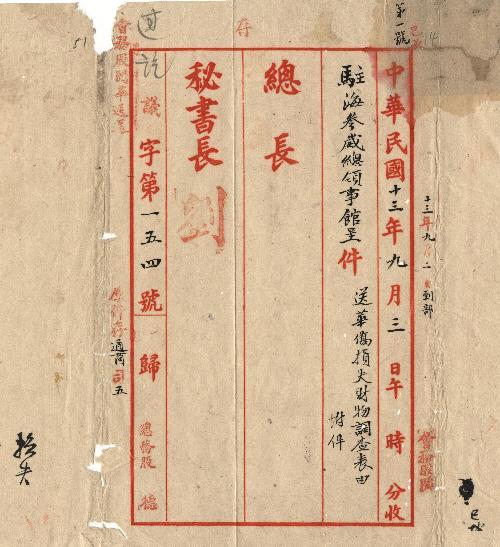 第一號
十三年九月二日到部
中華民國十三年九月三日午時分收
駐海參威總領事館呈件
送華僑損失財物調查表由
附件
總長
秘書長
劉
議字第一五四號
歸
總務股
存
51
損失